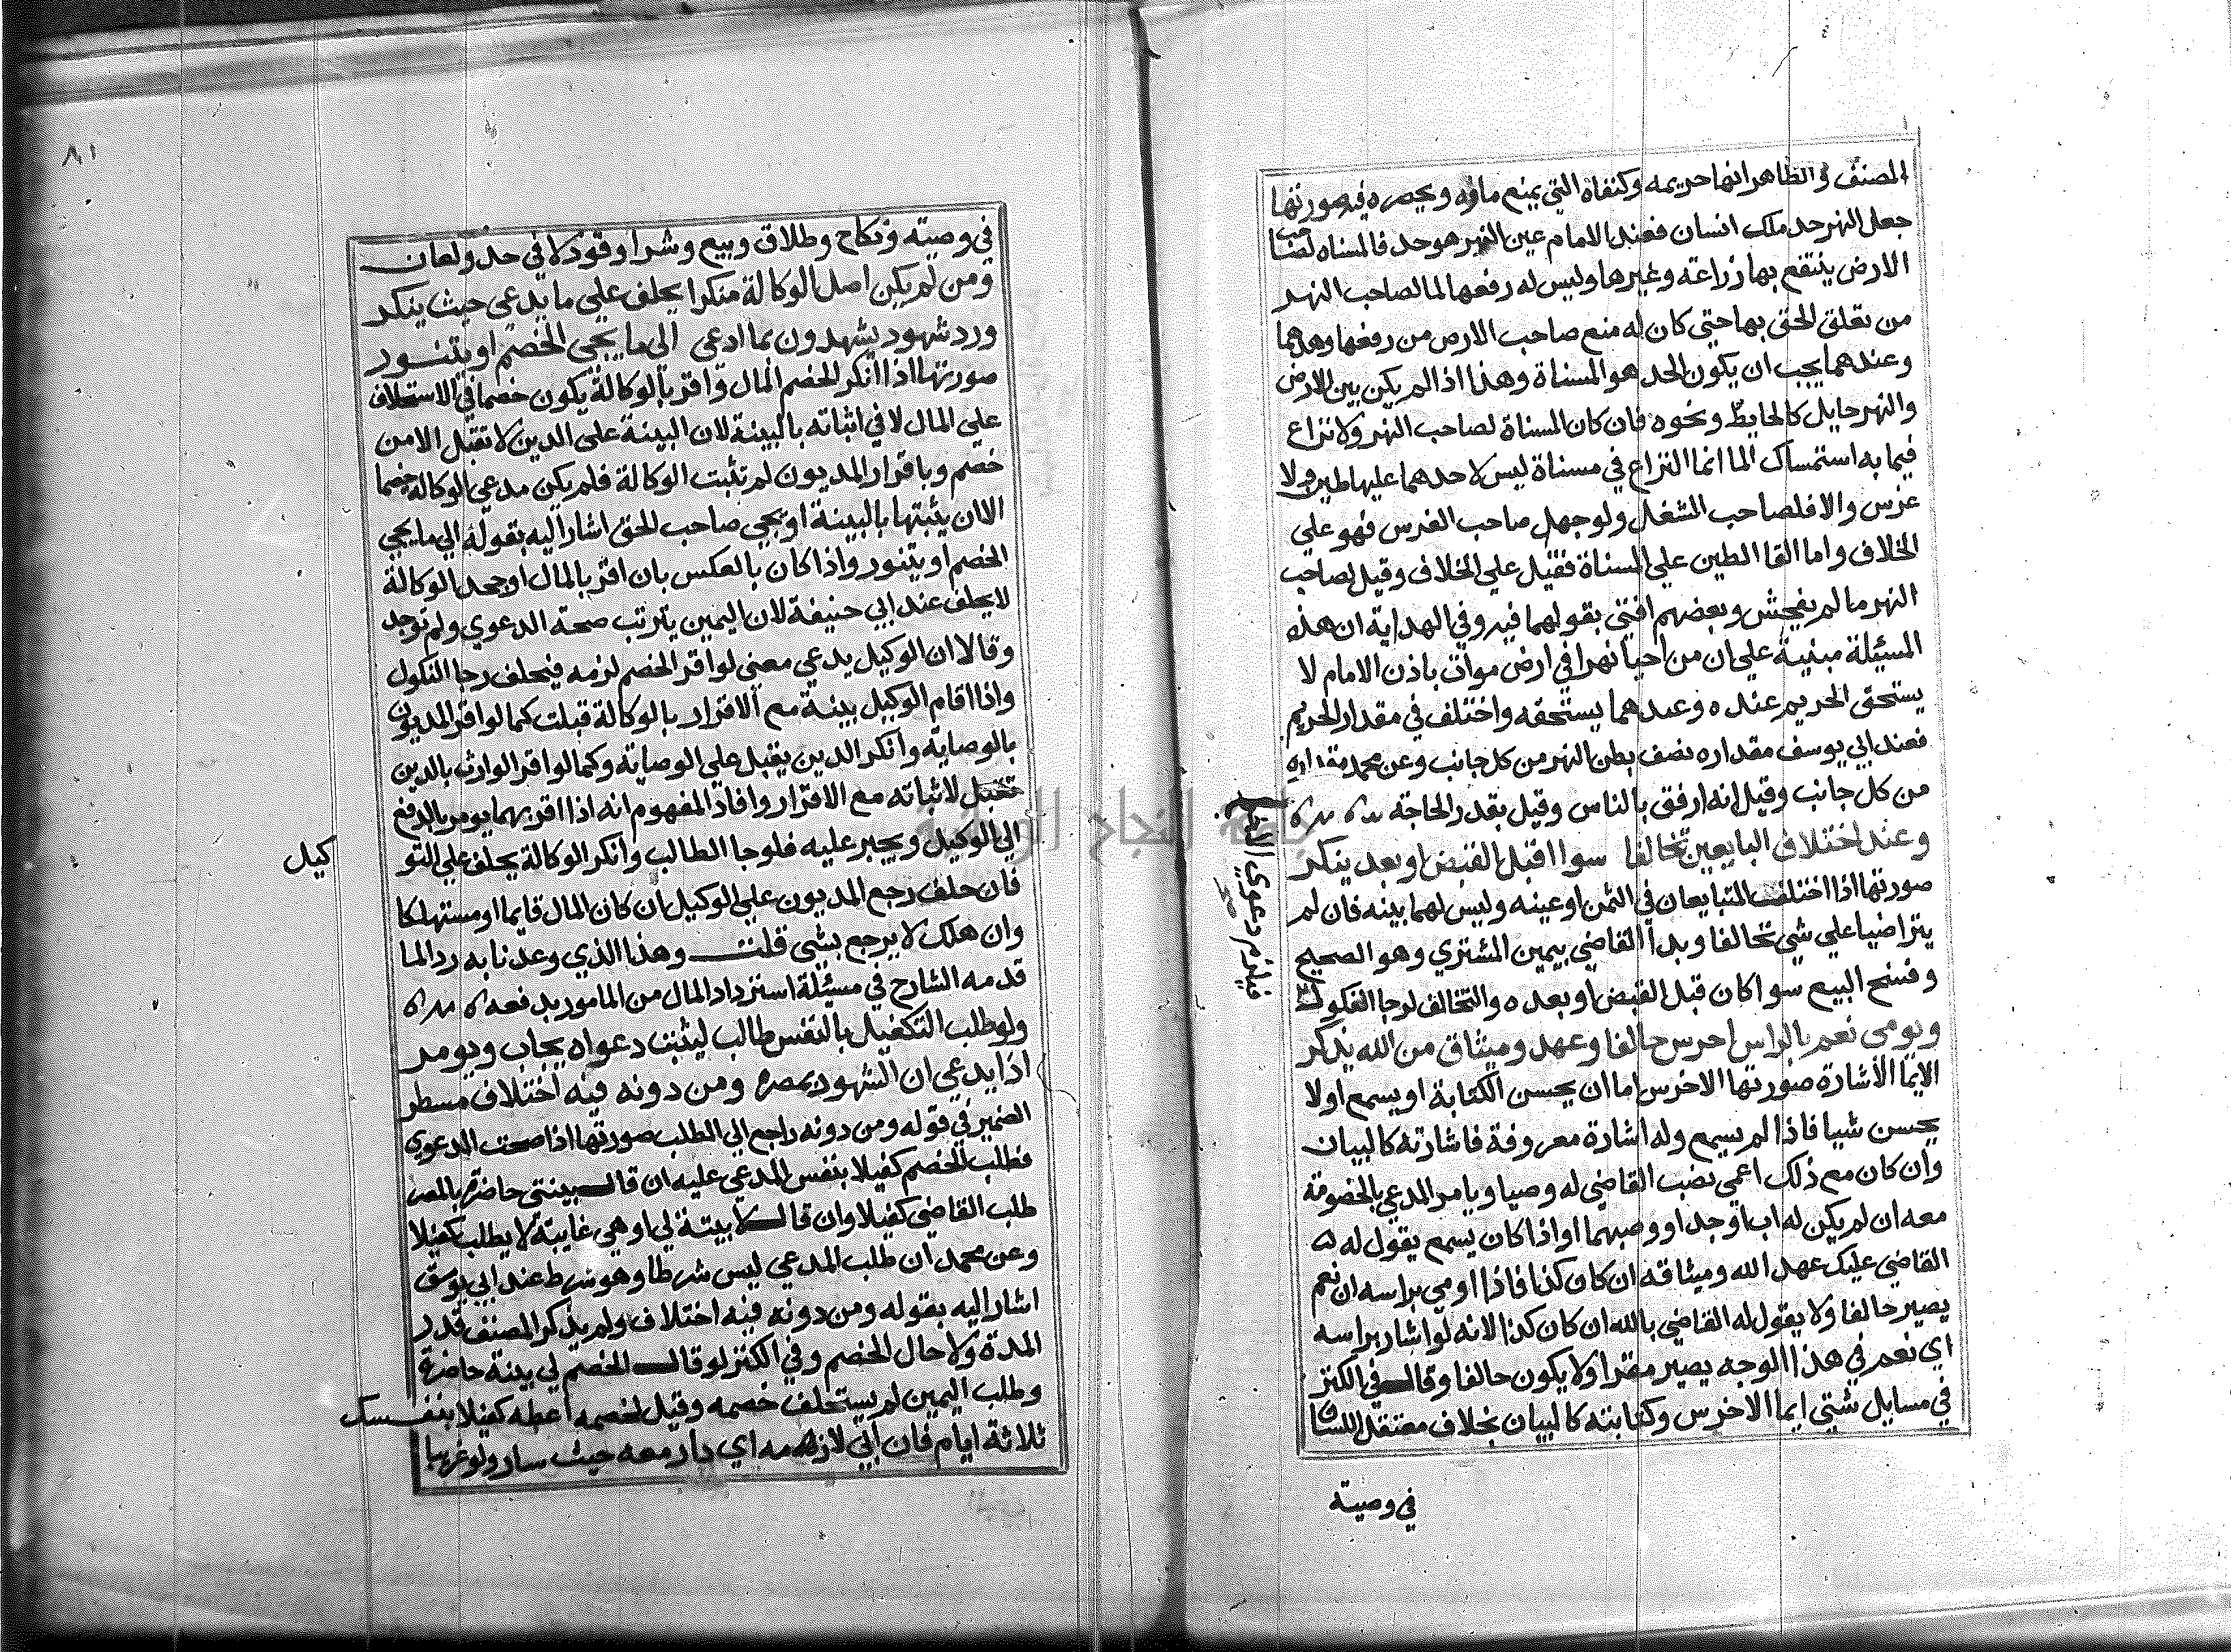 المصنف في الظاهر انها حريمه وكنفاه التي يمنع ماؤه ويحصره فيه صورتها
جعل النهر حد ملك انسان فعند الامام عين النهر هو حد فالمسناه لصاحب
الارض ينتفع بها زراعته وغيرها وليس له رفعها لما لصاحب النهر
من تعلق الحق بها حتى كان له منع صاحب الارض من رفعها وهدهما
وعندهما يجب ان يكون الحد هو المسناة وهذا اذا لم يكن بين الارض
والنهر حايل كالحايط ونحوه فان كان المسناة لصاحب النهر ولا نزاع
فيما به استمساك الما انما النزاع في مسناة ليس لاحدهما عليها طين ولا
غرس والا فلصاحب الشغل ولو جهل صاحب الغرس فهو علي
الخلاف واما القا الطين علي المسناة فقيل علي الخلاف وقيل لصاحب
النهر ما لم يفحش وبعضهم افتي بقولهما فيه وفي الهداية ان هذه
المسئلة مبنية علي ان من احيا نهرا في ارض موات باذن الامام لا
يستحق الحريم عنده وعندهما يستحقه واختلف في مقدار الحريم
فعند ابي يوسف مقداره نصف بطن النهر من كل جانب وعن محمد مقداره
من كل جانب وقيل انه ارفق بالناس وقيل بقدر الحاجة
وعند اختلاف البايعين تحالفا سوا اقبل القبض او بعد ينكر
صورتها اذا اختلف المتبايعان في الثمن او عينه وليس لهما بينه فان لم
يتراضيا علي شي تحالفا وبدا القاضي بيمين المشتري وهو الصحيح
وفسخ البيع سوا كان قبل القبض او بعده والتحالف لرجا النكول
فيلزم دعوي الاخر صح
ويومي نعم بالراس اخرس حالفا وعهد وميثاق من الله يذكر
الايما الاشارة صورتها الاخرس اما ان يحسن الكتابة او يسمع اولا
يحسن شيا فاذا لم يسمع وله اشارة معروفة فاشارته كالبيان
وان كان مع ذلك اعمي نصب القاضي له وصيا ويامر المدعي بالخصومة
معه ان لم يكن له اب اوجد او وصيهما او اذا كان يسمع يقول له
القاضي عليك عهد الله وميثاقه ان كان كذا فاذا اومي براسه ان نعم
يصير حالفا ولا يقول له القاضي بالله ان كان كذا لانه لو اشار براسه
اي نعم في هذا الوجه يصير مقرا ولا يكون حالفا وقال في الكنز
في مسايل شتي ايما الاخرس وكتابته كالبيان بخلاف معتقل اللسان
في وصية
٨١
في وصية ونكاح وطلاق وبيع وشرا وقود لا في حد ولعان
ومن لم يكن اصل الوكالة منكرا يحلف علي ما يدعي حيث ينكر
ورد شهود يشهدون بما ادعي الي ما يجي الخصم او يتنور
صورتها اذا انكر الخصم المال واقر بالوكالة يكون خصما في الاستحلاف
علي المال لا في اثباته بالبينة لان البينة علي الدين لا تقبل الا من
خصم وباقرار المديون لم تثبت الوكالة فلم يكن مدعي الوكالة خصما
الا ان يثبتها بالبينة او يجي صاحب الحق اشار اليه بقوله الي ما يجي
الخصم او يتنور واذا كان بالعكس بان اقر بالمال او جحد الوكالة
لا يحلف عند ابي حنيفة لان اليمين يترتب صحة الدعوي ولم توجد
وقالا ان الوكيل يدعي معني لو اقر الخصم لزمه فيحلف رجا النكول
واذا اقام الوكيل بينة مع الاقرار بالوكالة قبلت كما لو اقر المديون
بالوصاية وانكر الدين يقبل علي الوصاية وكما لو اقر الوارث بالدين
تقبل لاثباته مع الاقرار وافاد المفهوم انه اذا اقر بهما يومر بالدفع
الي الوكيل ويجبر عليه فلو جا الطالب وانكر الوكالة يحلف علي التو
كيل
فان حلف رجع المديون علي الوكيل ان كان المال قايما او مستهلكا
وان هلك لا يرجع بشي قلت وهذا الذي وعدنا به رد الما
قدمه الشارح في مسئلة استرداد المال من المامور بدفعه
ولو طلب التكفيل بالنفس طالب ليثبت دعواه يجاب ويومر
اذا يدعي ان الشهود بمصره ومن دونه فيه اختلاف مسطر
الضمير في قوله ومن دونه راجع الي الطلب صورتها اذا صحت الدعوي
فطلب الخصم كفيلا بنفس المدعي عليه ان قال بينتي حاضرة بالمصر
طلب القاضي كفيلا وان قال لا بينة لي او هي غايبة لا يطلب كفيلا
وعن محمد ان طلب المدعي ليس شرطا وهو شرط عند ابي يوسف
اشار اليه بقوله ومن دونه فيه اختلاف ولم يذكر المصنف قدر
المدة ولا حال الخصم وفي الكنز لو قال الخصم لي بينة حاضرة
وطلب اليمين لم يستحلف خصمه وقيل لخصمه اعطه كفيلا بنفسك
ثلاثة ايام فان ابي لازمه اي دار معه حيث سار ولو غريبا